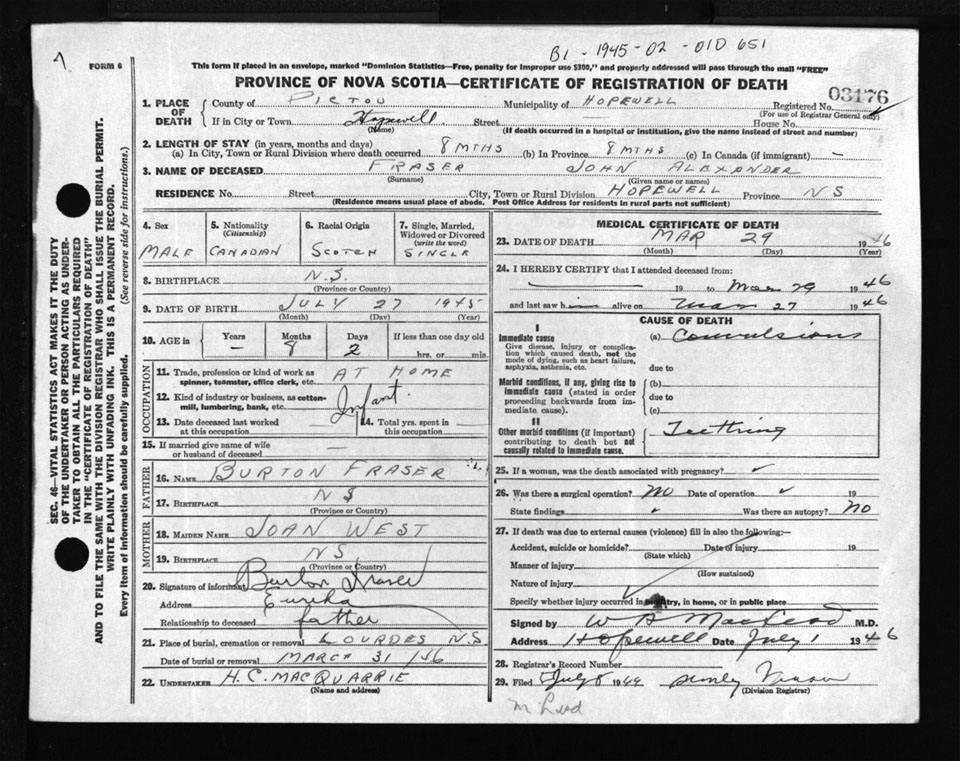 B1 - 1945 - 02 - 01D 651
FORM 6
This form if placed in an envelope, marked "Dominion Statistics—Free, penalty for improper use $300," and properly addressed will pass through the mail "FREE"
PROVINCE OF NOVA SCOTIA—CERTIFICATE OF REGISTRATION OF DEATH
03176
1. PLACE OF DEATH { County of PICTOU Municipality of HOPEWELL Registered No.
(For use of Registrar General only)
If in City or Town Hopewell Street House No.
(Name) (If death occurred in a hospital or institution, give the name instead of street and number)
2. LENGTH OF STAY (in years, months and days)
(a) In City, Town or Rural Division where death occurred 8 MTHS (b) In Province 8 MTHS (c) In Canada (if immigrant) —
3. NAME OF DECEASED FRASER JOHN ALEXANDER
(Surname) (Given name or names)
RESIDENCE No. Street City, Town or Rural Division HOPEWELL Province NS
(Residence means usual place of abode. Post Office Address for residents in rural parts not sufficient)
4. Sex MALE
5. Nationality (Citizenship) CANADIAN
6. Racial Origin SCOTCH
7. Single, Married, Widowed or Divorced (write the word) SINGLE
8. BIRTHPLACE N.S.
(Province or Country)
9. DATE OF BIRTH JULY 27 1945
(Month) (Day) (Year)
10. AGE in Years — Months 8 Days 2 If less than one day
hrs. or min.
OCCUPATION
11. Trade, profession or kind of work as spinner, teamster, office clerk, etc. AT HOME
12. Kind of industry or business, as cotton-mill, lumbering, bank, etc. Infant
13. Date deceased last worked at this occupation
14. Total yrs. spent in this occupation
15. If married give name of wife or husband of deceased —
FATHER
16. NAME BURTON FRASER
17. BIRTHPLACE NS
(Province or Country)
MOTHER
18. MAIDEN NAME JOAN WEST
19. BIRTHPLACE NS
(Province or Country)
20. Signature of informant Burton Fraser
Address Eureka
Relationship to deceased father
21. Place of burial, cremation or removal LOURDES N.S.
Date of burial or removal MARCH 31/46
22. UNDERTAKER H.C. MACQUARRIE
(Name and address)
MEDICAL CERTIFICATE OF DEATH
23. DATE OF DEATH MAR 29 1946
(Month) (Day) (Year)
24. I HEREBY CERTIFY that I attended deceased from:
19 to Mar 29 1946
and last saw him alive on Mar 27 1946
CAUSE OF DEATH
I
Immediate cause (a) Convulsions
Give disease, injury or complication which caused death, not the mode of dying, such as heart failure, asphyxia, asthenia, etc.
due to
Morbid conditions, if any, giving rise to immediate cause (stated in order proceeding backwards from immediate cause).
(b)
due to
(c)
II
Other morbid conditions (if important) contributing to death but not causally related to immediate cause. Teething
25. If a woman, was the death associated with pregnancy?
26. Was there a surgical operation? No Date of operation 19
State findings Was there an autopsy? NO
27. If death was due to external causes (violence) fill in also the following:—
Accident, suicide or homicide? Date of injury 19
(State which)
Manner of injury
(How sustained)
Nature of injury
Specify whether injury occurred in industry, in home, or in public place
Signed by W A MacLeod M.D.
Address Hopewell Date July 1 1946
28. Registrar's Record Number
29. Filed July 8 19
(Division Registrar)
SEC. 46—VITAL STATISTICS ACT MAKES IT THE DUTY
OF THE UNDERTAKER OR PERSON ACTING AS UNDER-
TAKER TO OBTAIN ALL THE PARTICULARS REQUIRED
IN THE "CERTIFICATE OF REGISTRATION OF DEATH"
AND TO FILE THE SAME WITH THE DIVISION REGISTRAR WHO SHALL ISSUE THE BURIAL PERMIT.
WRITE PLAINLY WITH UNFADING INK. THIS IS A PERMANENT RECORD.
Every item of information should be carefully supplied. (See reverse side for instructions.)